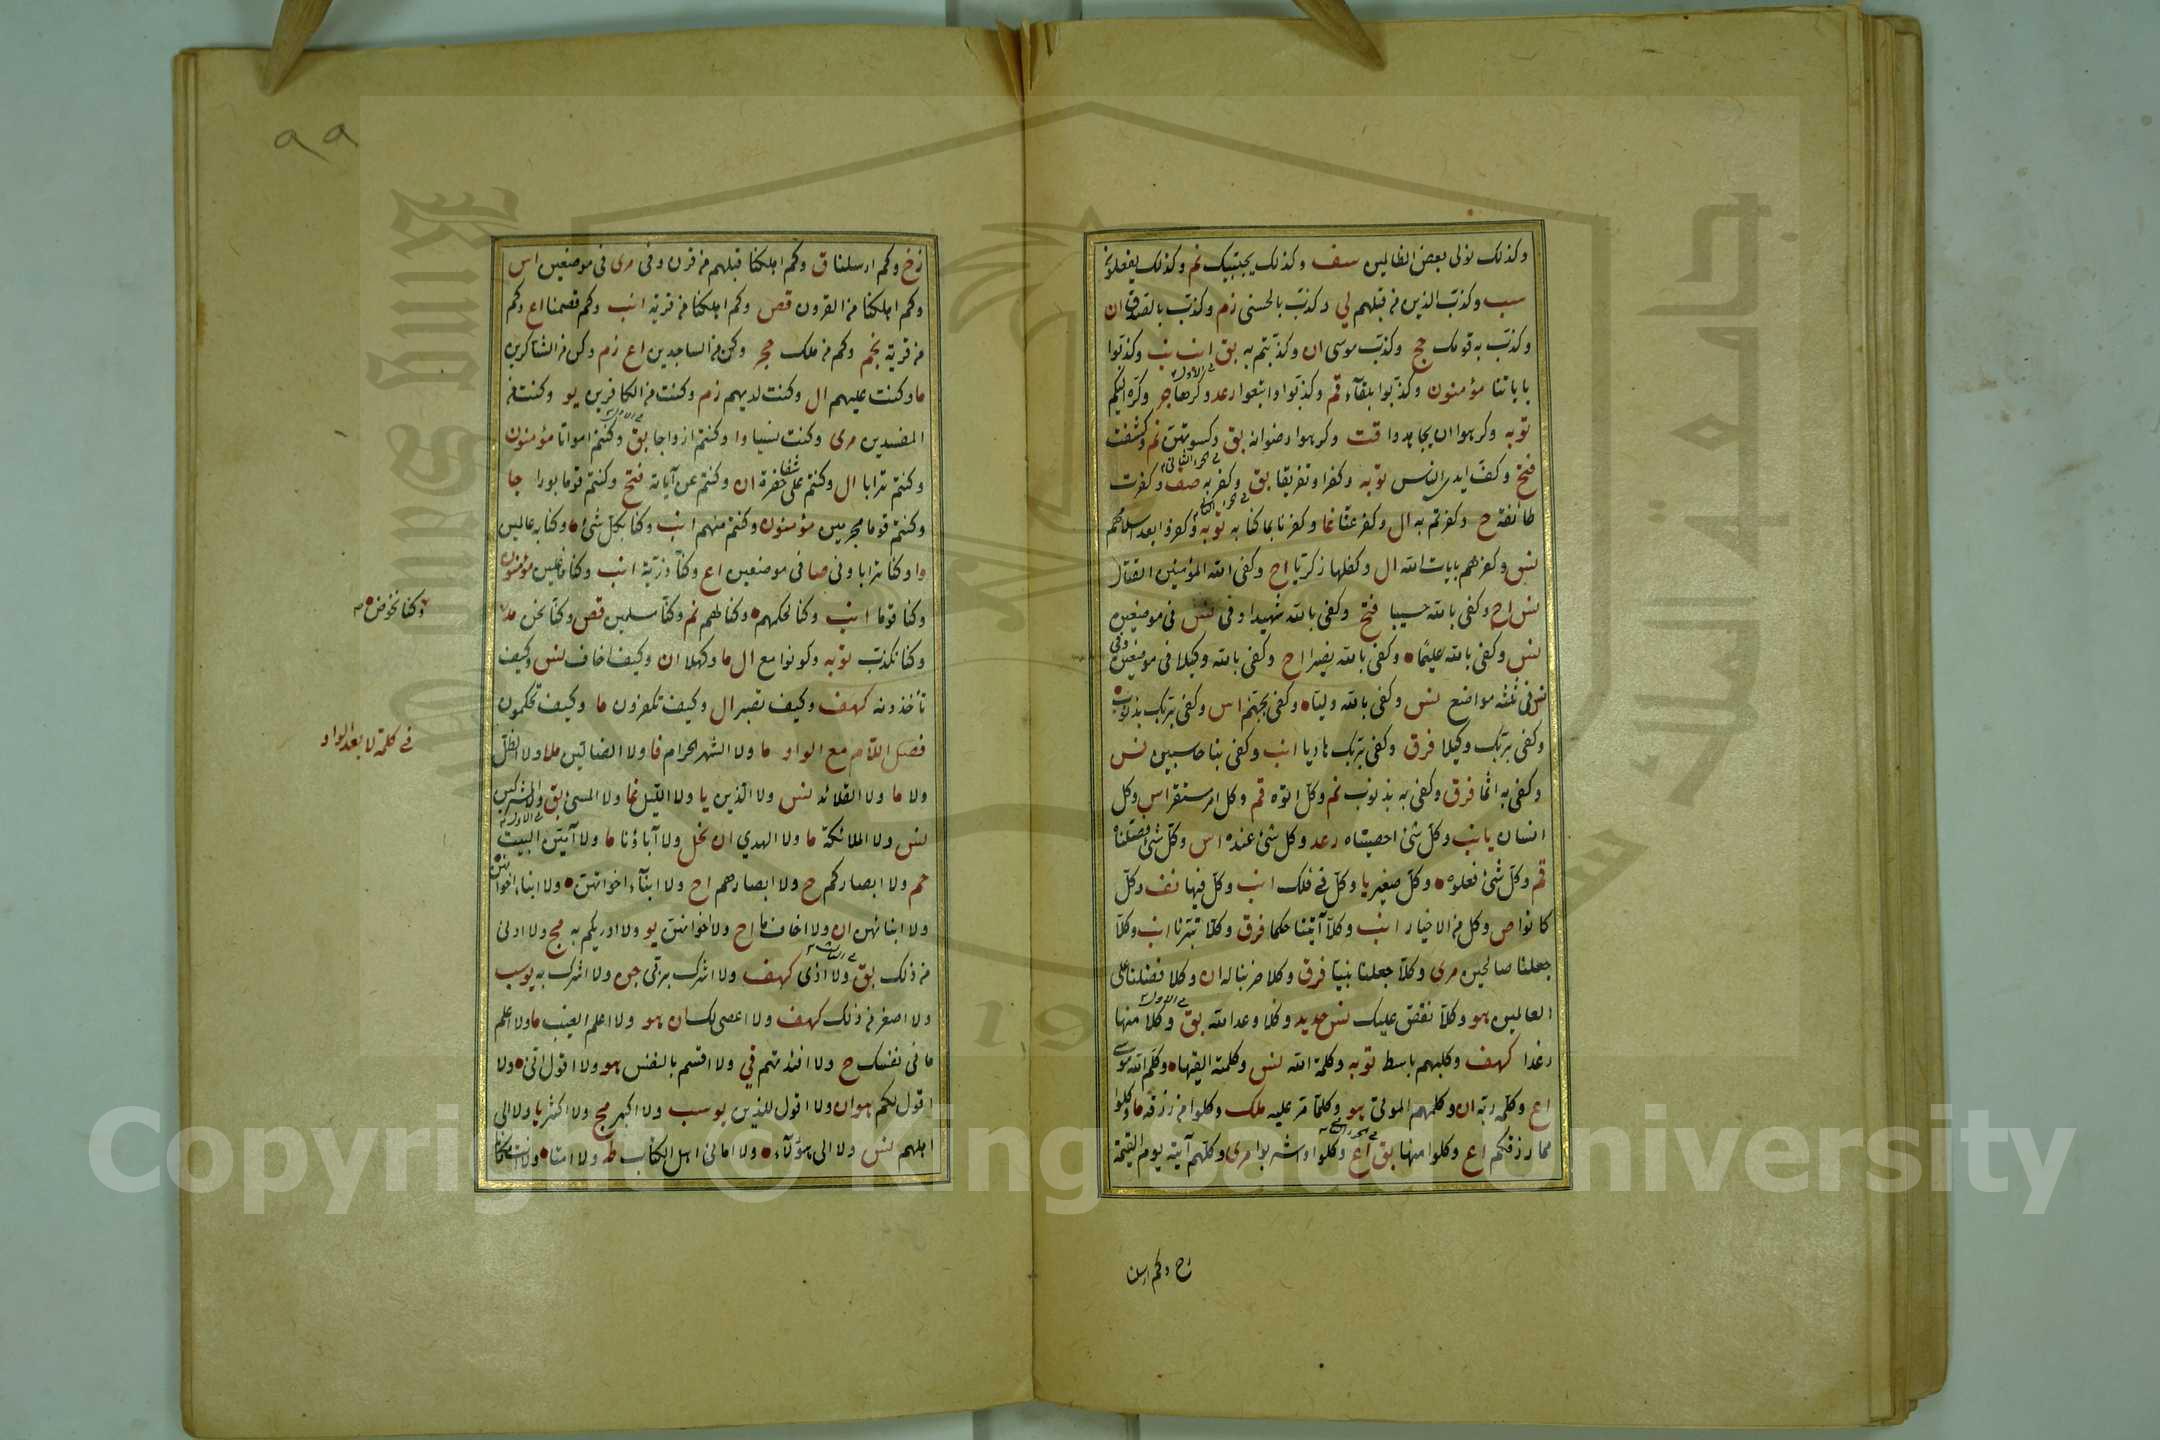 وكذلك نولى بعض الظالمين سف وكذلك يجتبيك نم وكذلك يفعلون
سب وكذب الذين من قبلهم لي وكذب بالحسنى زم وكذب بالصدق ان
وكذب به قومك حج وكذب موسى ان وكذبتم به بق انب وكذبوا
باياتنا مؤمنون وكذبوا بلقاء قم وكذبوا واتبعوا رعد وكرها حجر وكره اليكم
توبه وكرهوا ان يجاهدوا قت وكرهوا رضوانه بق وكسوتهن نم وكشفت
فتح وكف ايدى الناس توبه وكفرا وتفريقا بق وكفر به صف وكفرت
طائفة ح وكفرتم به ال وكفر عنا غا وكفرنا بما كنا به توبه وكفروا بعد اسلامهم
نس وكفرهم بايات الله ال وكفلها زكريا اح وكفى الله المؤمنين القتال
نس اح وكفى بالله حسيبا فتح وكفى بالله شهيدا وفى نس فى موضعين
نس وكفى بالله عليما وكفى بالله نصيرا اح وكفى بالله وكيلا فى موضعين وفى
نس فى ثلثه مواضع نس وكفى بالله وليا وكفى بجهنم اس وكفى بربك بذنوب
وكفى بربك وكيلا فرق وكفى بربك هاديا انب وكفى بنا حاسبين نس
وكفى به اثما فرق وكفى به بذنوب نم وكل اتوه قم وكل امر مستقر اس وكل
انسان يا نب وكل شئ احصيناه رعد وكل شئ عنده اس وكل شئ فصلناه
قم وكل شئ فعلوه وكل صغير يا وكل فى فلك انب وكل فيها نف وكل
كانوا ص وكل من الاخيار انب وكلا آتينا حكما فرق وكلا تبرنا انب وكلا
جعلنا صالحين مرى وكلا جعلنا نبيا فرق وكلا ضربنا له ان وكلا فضلنا على
العالمين هو وكلا نقص عليك نس حديد وكلا وعد الله بق وكلا منها
رغدا كهف وكلبهم باسط توبه وكلمة الله نس وكلمته القيها وكلم الله موسى
اع وكلمه ربه ان وكلمهم الموتى هو وكلما مر عليه ملك وكلوا من رزقه ما وكلوا
مما رزقكم اع وكلوا منها بق اع وكلوا واشربوا مرى وكلهم آتيه يوم القيمة
زخ وكم ارسلنا
٩٩
زخ وكم ارسلنا ق وكم اهلكنا قبلهم من قرن وفى مرى فى موضعين اس
وكم اهلكنا من القرون قص وكم اهلكنا من قرية انب وكم قصمنا اع وكم
من قرية نجم وكم من ملك حجر وكن من الساجدين اع زم وكن من الشاكرين
ما وكنت عليهم ال وكنت لديهم زم وكنت من الكافرين يو وكنت من
المفسدين مرى وكنت نسيا وا وكنتم ازواجا بق وكنتم امواتا مؤمنون
وكنتم ترابا ال وكنتم على شفا حفرة ان وكنتم عن آياته فتح وكنتم قوما بورا جا
وكنتم قوما مجرمين مؤمنون وكنتم منهم انب وكنا بكل شئ وكنا به عالمين
وا وكنا ترابا وفى صا فى موضعين اع وكنا ذرية انب وكنا فاعلين مؤمنون
وكنا قوما انب وكنا لحكمهم وكنا لهم نم وكنا مسلمين قص وكنا نحن مد
وكنا نخوض
وكنا نكذب توبه وكونوا مع ال ما وكهلا ان وكيف اخاف نس وكيف
تأخذونه كهف وكيف تصبر ال وكيف تكفرون ما وكيف تحكمون
فصل اللام مع الواو ما ولا الشهر الحرام فا ولا الضالين ملا ولا الظل
فى كلمة لا بعد الواو
ولا ما ولا القلائد نس ولا الذين يا ولا الليل غا ولا المسئ بق ولا المشركين
نس ولا الملائكة ما ولا الهدي ان نحل ولا آباؤنا ما ولا آمين البيت
حم ولا ابصاركم ح ولا ابصارهم اح ولا ابناء اخواتهن ولا ابناء اخوانهن
ولا ابنائهن ان ولا اخاف ما اح ولا اخوانهن يو ولا ادريكم به مج ولا ادنى
من ذلك بق ولا اذى كهف ولا اشرك بربى جن ولا اشرك به يو سب
ولا اصغر من ذلك كهف ولا اعصى لك ان هو ولا اعلم الغيب ما ولا اعلم
ما فى نفسك ح ولا افئدتهم في ولا اقسم بالنفس هو ولا اقول انى ولا
اقول لكم هو ان ولا اقول للذين يو سب ولا اكبر مج ولا اكثر يا ولا الى
اهلهم نس ولا الى هؤلاء ولا امانى اهل الكتاب ط ولا امتا
Copyright © King Saud University